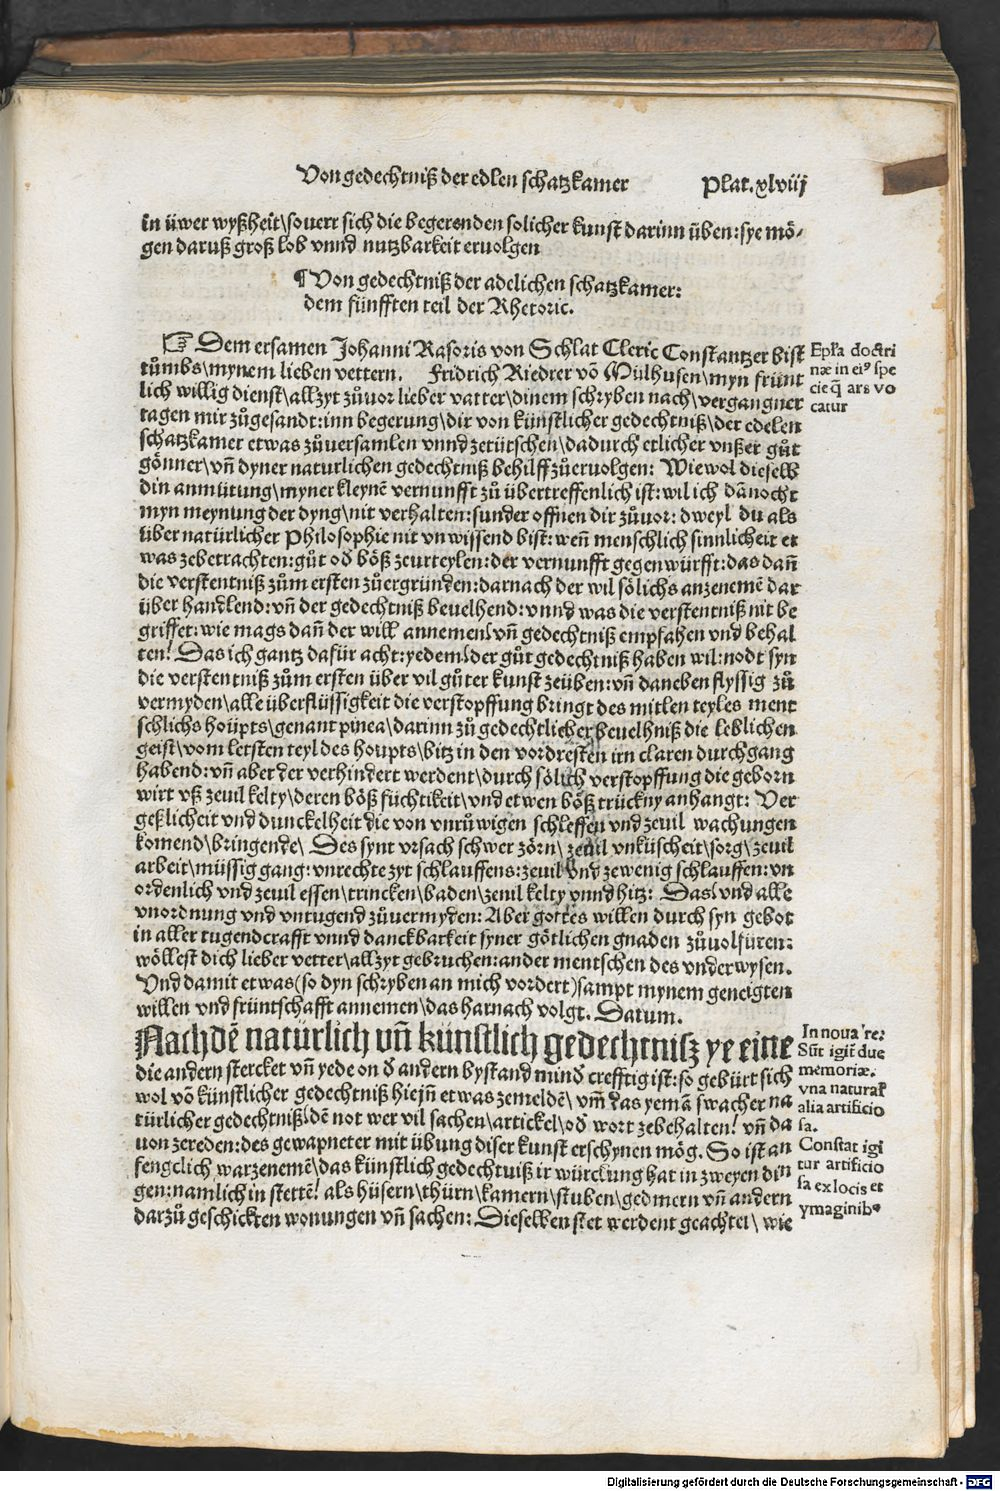 Von gedechtniß der edlen schatzkamer
Plat. xlviij
in üwer wyßheit\souerr sich die begerenden solicher kunst darinn üben: sye mö-
gen daruß groß lob vnnd nutzbarkeit eruolgen
¶ Von gedechtniß der adelichen schatzkamer:
dem fünfften teil der Rhetoric.
☞ Dem ersamen Johanni Rasoris von Schlat Cleric Constantzer bist
tůmbs\mynem lieben vettern. Fridrich Riedrer võ Mülhusen\myn früntt
lich willig dienst\allzyt zůuor lieber vatter\dinem schryben nach\vergangner
tagen mir zůgesandt: inn begerung\dir von künstlicher gedechtniß\der edelen
schatzkamer etwas zůuersamlen vnnd zetütschen\dadurch etlicher vnßer gůt
gönner\vñ dyner naturlichen gedechtniß behilff zůeruolgen: Wiewol dieselb
din anmůtung\myner kleynẽ vernunfft zů übertreffenlich ist: wil ich dãnocht
myn meynung der dyng\nit verhalten: sunder offnen dir zůuor: dweyl du als
über natürlicher Philosophie nit vnwissend bist: weñ menschlich sinnlicheit et
was zebetrachten: gůt oď böß zeurteylen: der vernunfft gegenwürfft: das dañ
die verstentniß zům ersten zůergründen: darnach der wil sölichs anzenemẽ dar
über handlend: vñ der gedechtniß beuelhend: vnnd was die verstentniß nit be
griffet: wie mags dañ der will annemen! vñ gedechtniß empfahen vnd behal
ten! Das ich gantz dafür acht: yedem! der gůt gedechtniß haben wil: nodt syn
die verstentniß zům ersten über vil gůter kunst zeüben: vñ daneben flyssig zů
vermyden\alle überflüssigkeit die verstopffung bringt des mitlen teyles ment
schlichs hoüpts\genant pinea\darinn zů gedechtlicher beuelhniß die leblichen
geist\vom letsten teyl des houpts\bitz in den vordresten irn claren durchgang
habend: vñ aber der verhindert werdent\durch sölich verstopffung die geborn
wirt vß zeuil kelty\deren böß füchtikeit\vnd etwen böß trückny anhangt: Ver
geßlicheit vnd dunckelheit die von vnrüwigen schleffen vnd zeuil wachungen
komend\bringende\ Des synt vrsach schwer zörn\ zeuil vnküscheit\sorg\zeuil
arbeit\müssig gang: vnrechte zyt schlauffens: zeuil vnd zewenig schlauffen: vn
ordenlich vnd zeuil essen\trincken\baden\zeuil kelty vnnd hitz: Das! vnd alle
vnordnung vnd vntugend zůuermyden: Aber gottes willen durch syn gebot
in aller tugendcrafft vnnd danckbarkeit syner götlichen gnaden zůuolfüren:
wöllest dich lieber vetter\allzyt gebruchen: ander mentschen des vnderwysen.
Vnd damit etwas (so dyn schryben an mich vordert) sampt mynem geneigten
willen vnd früntschafft annemen\das harnach volgt. Datum.
Nachdẽ natürlich vñ künstlich gedechtnisz ye eine
die andern stercket vñ yede on ď andern bystand minď crefftig ist: so gebürt sich
wol võ künstlicher gedechtniß hiejñ etwas zemeldẽ\ vm̃ das yemã swacher na
türlicher gedechtniß! dẽ not wer vil sachen\artickel\oď wort zebehalten! vñ da
uon zereden: des gewapneter mit übung diser kunst erschynen mög. So ist an
fengclich warzenemẽ\das künstlich gedechtniß ir würckung hat in zweyen din
gen: namlich in stetten! als hüsern\thürn\kamern\stuben\gedmern vñ andern
darzů geschickten wonungen vñ sachen: Dieselben stet werdent geachtet\ wie
Epl'a doctri
næ in ei⁹ spe
cie q̃ ars vo
catur
In noua re.
Sũt igit̃ due
memoriæ.
vna natural'
alia artificio
sa.
Constat igi
tur artificio
sa ex locis et
ymaginib⁹
Digitalisierung gefördert durch die Deutsche Forschungsgemeinschaft - DFG